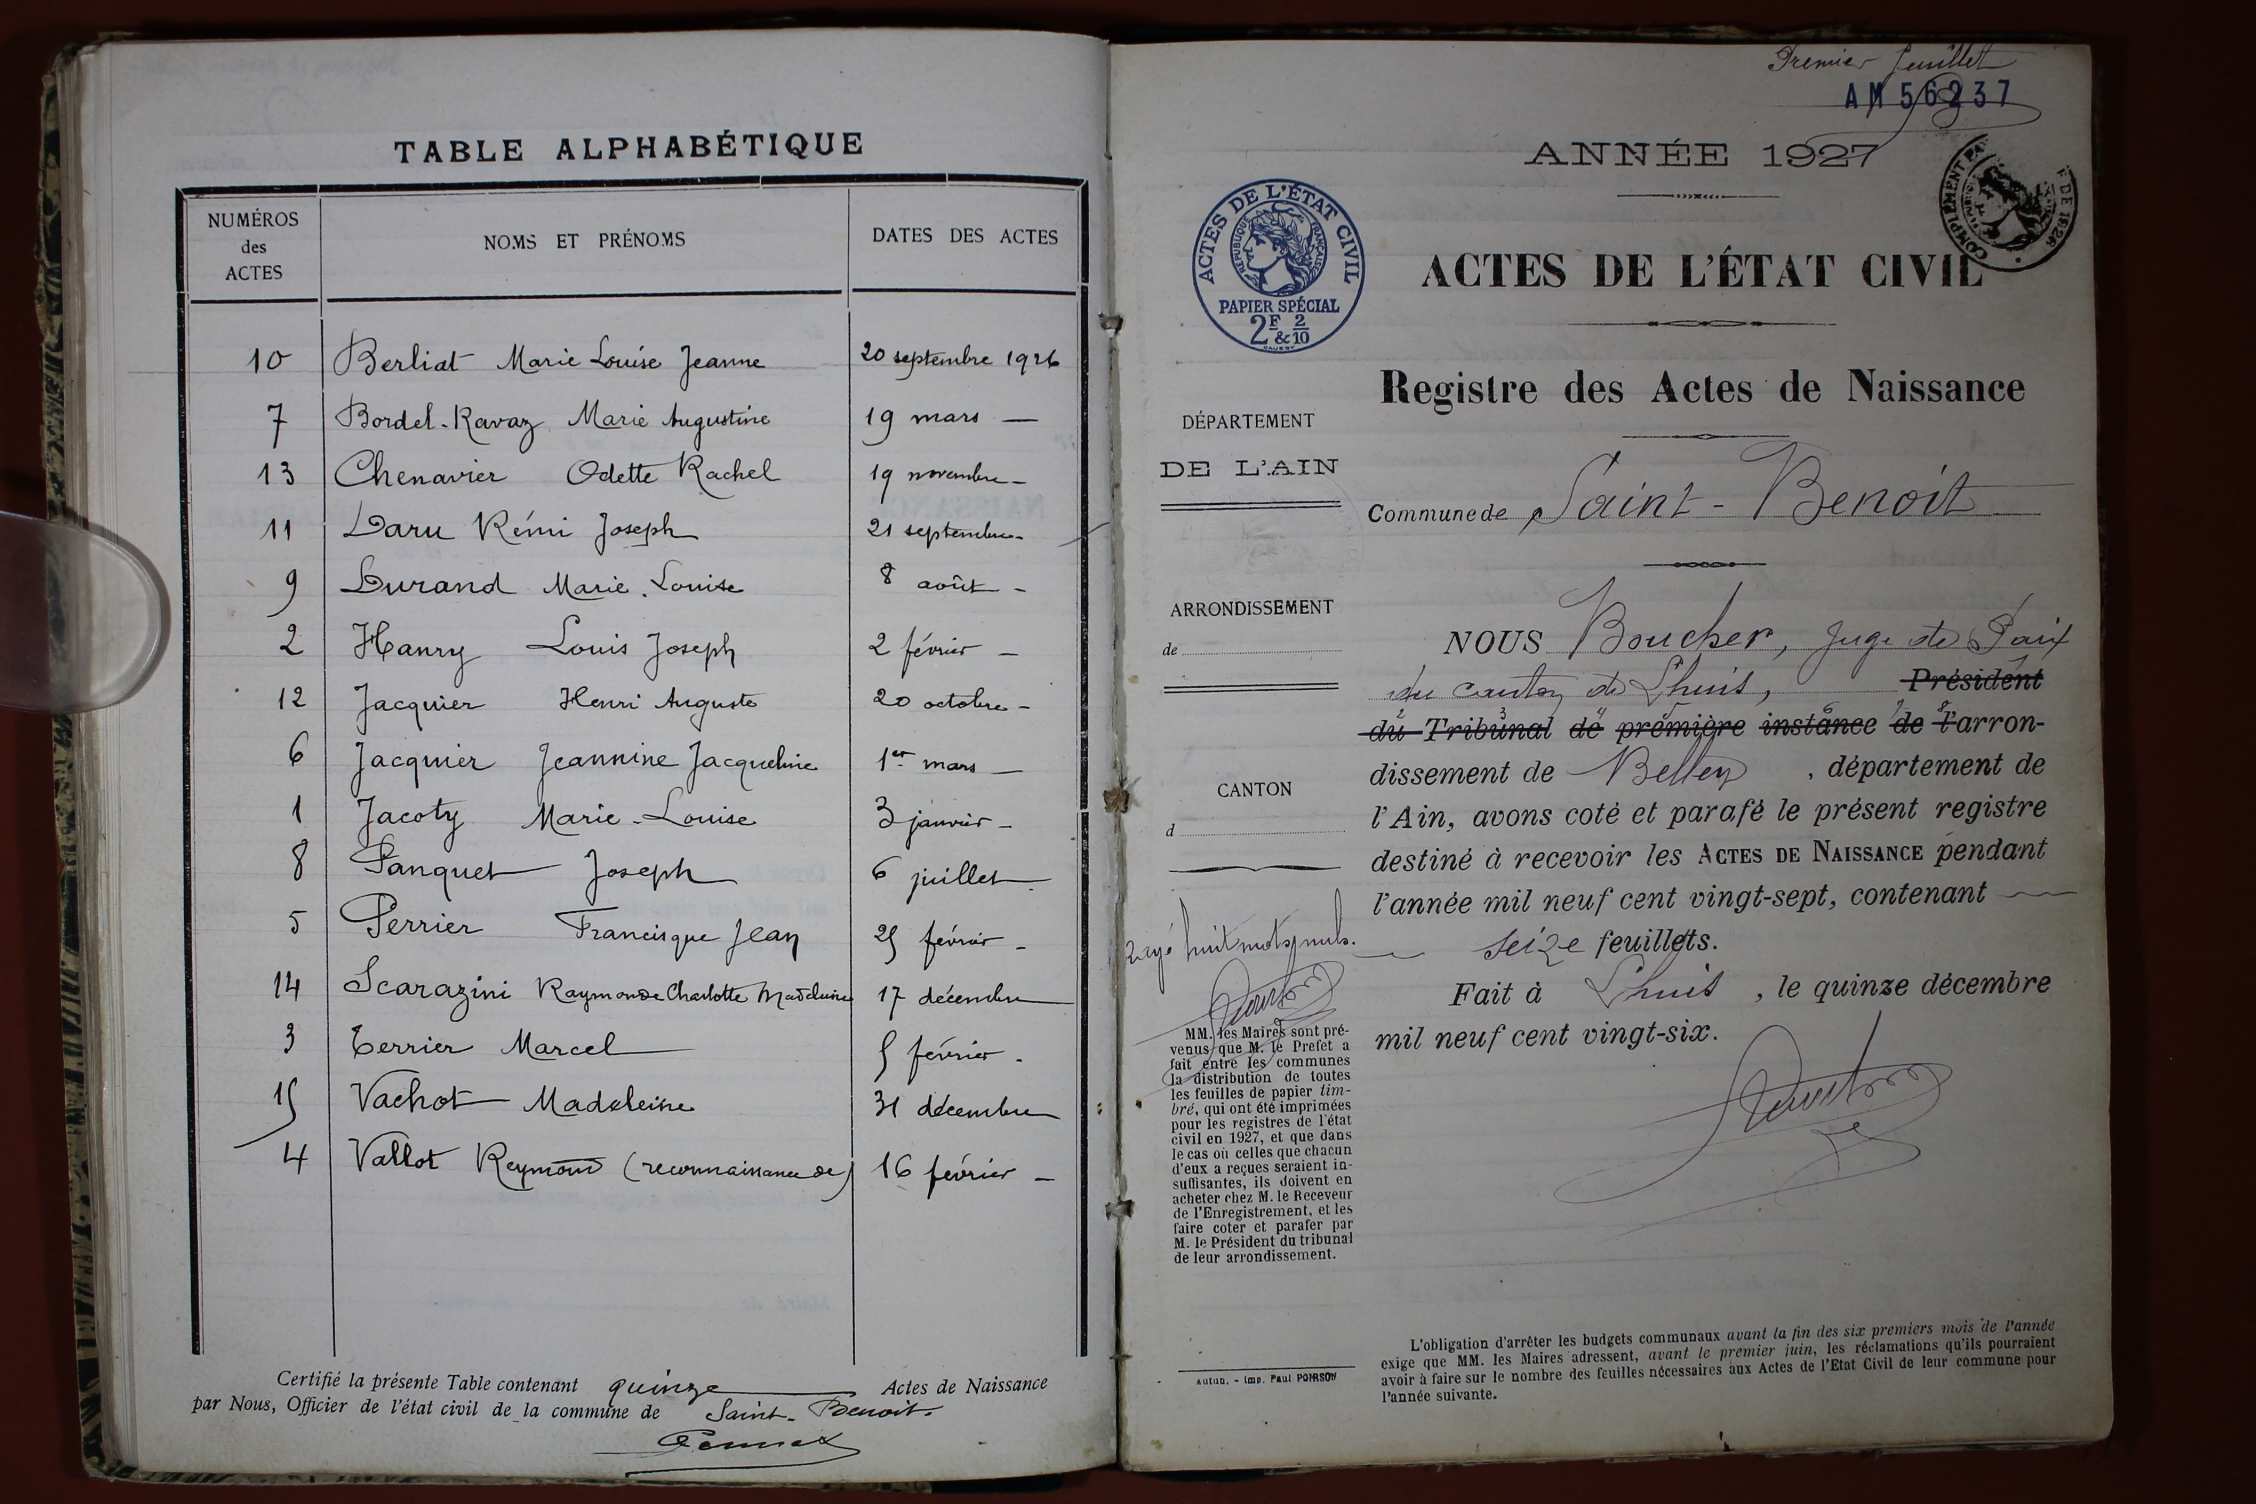 TABLE ALPHABÉTIQUE
NUMÉROS des ACTES
NOMS ET PRÉNOMS
DATES DES ACTES
10 Berliat Marie Louise Jeanne 20 septembre 1926
7 Bordel-Ravaz Marie Augustine 19 mars —
13 Chenavier Odette Rachel 19 novembre -
11 Daru Rémi Joseph 21 septembre -
9 Durand Marie-Louise 8 août -
2 Hanry Louis Joseph 2 février -
12 Jacquier Henri Auguste 20 octobre -
6 Jacquier Jeannine Jacqueline 1er mars -
1 Jacoty Marie-Louise 3 janvier -
8 Panquet Joseph 6 juillet
5 Perrier Francisque Jean 25 février -
14 Scarazini Raymonde Charlotte Madeleine 17 décembre
3 Terrier Marcel 5 février -
15 Vachot Madeleine 31 décembre
4 Vallot Reymond (reconnaissance de) 16 février -
Certifié la présente Table contenant quinze Actes de Naissance
par Nous, Officier de l'état civil de la commune de Saint-Benoit.
Premier feuillet
AM 56237
ANNÉE 1927
ACTES DE L'ÉTAT CIVIL
RÉPUBLIQUE FRANÇAISE
PAPIER SPÉCIAL
2F & 2/10
COMPLÉMENT
DE 1926
ACTES DE L'ÉTAT CIVIL
Registre des Actes de Naissance
DÉPARTEMENT
DE L'AIN
Commune de Saint-Benoit
ARRONDISSEMENT
de
CANTON
d
NOUS Boucher, Juge de Paix
du canton de Lhuis, Président
du Tribunal de première instance de l'arron-
dissement de Belley, département de
l'Ain, avons coté et parafé le présent registre
destiné à recevoir les ACTES DE NAISSANCE pendant
l'année mil neuf cent vingt-sept, contenant
seize feuillets.
Fait à Lhuis, le quinze décembre
mil neuf cent vingt-six.
rayé huit mots nuls.
MM. les Maires sont pré-
venus que M. le Préfet a
fait entre les communes
la distribution de toutes
les feuilles de papier tim-
bré, qui ont été imprimées
pour les registres de l'état
civil en 1927, et que dans
le cas où celles que chacun
d'eux a reçues seraient in-
suffisantes, ils doivent en
acheter chez M. le Receveur
de l'Enregistrement, et les
faire coter et parafer par
M. le Président du tribunal
de leur arrondissement.
Autun. - Imp. Paul POIRSON
L'obligation d'arrêter les budgets communaux avant la fin des six premiers mois de l'année
exige que MM. les Maires adressent, avant le premier juin, les réclamations qu'ils pourraient
avoir à faire sur le nombre des feuilles nécessaires aux Actes de l'Etat Civil de leur commune pour
l'année suivante.